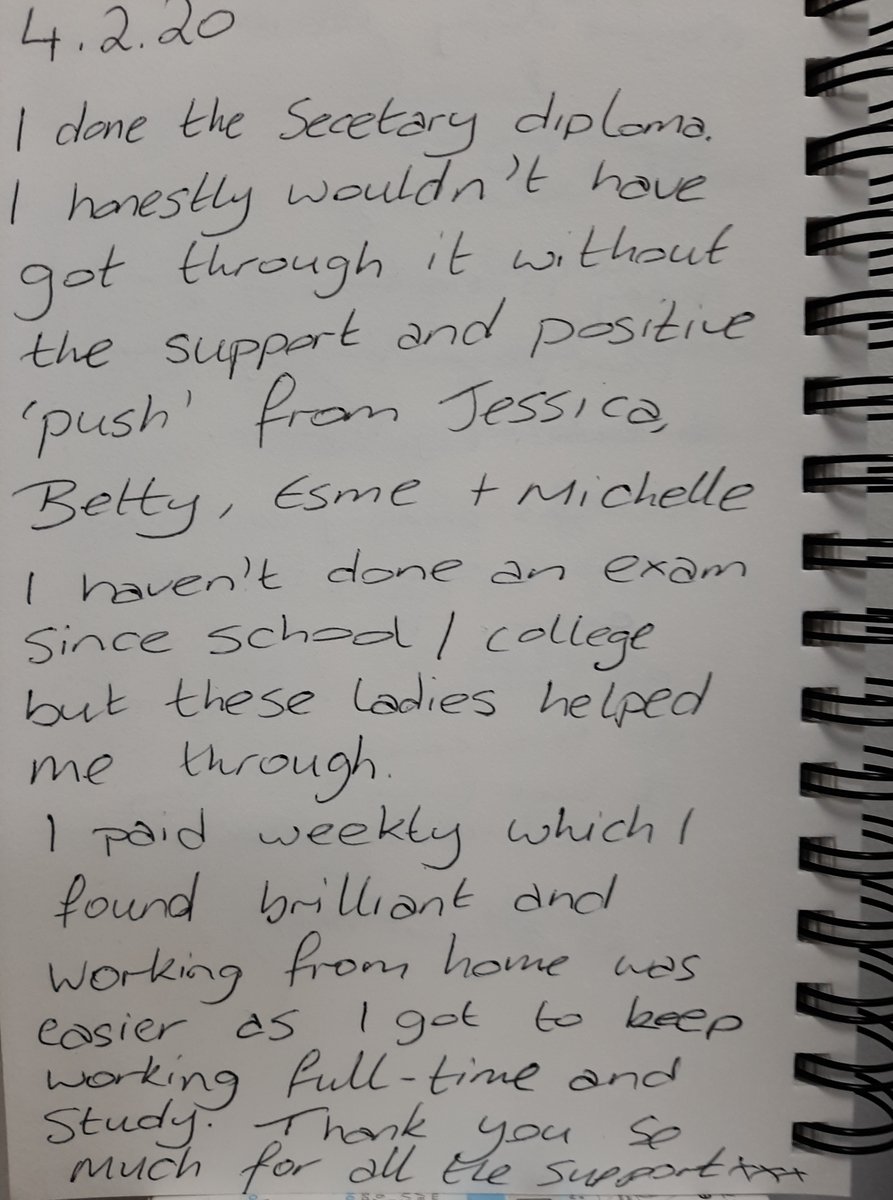 4.2.20
I done the Secetary diploma.
I honestly wouldn't have
got through it without
the support and positive
'push' from Jessica,
Betty, Esme + Michelle
I haven't done an exam
since school / college
but these ladies helped
me through.
I paid weekly which I
found brilliant and
working from home was
easier as I got to keep
working full-time and
study. Thank you so
much for all the support xxx